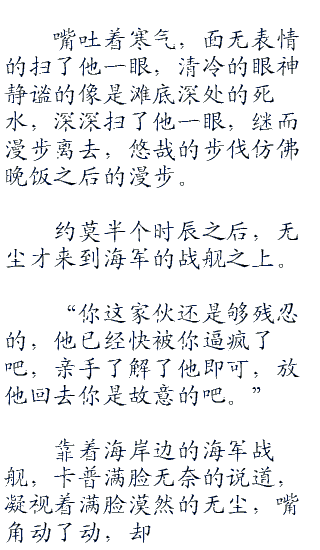 嘴吐着寒气，面无表情
的扫了他一眼，清冷的眼神
静谧的像是滩底深处的死
水，深深扫了他一眼，继而
漫步离去，悠哉的步伐仿佛
晚饭之后的漫步。
约莫半个时辰之后，无
尘才来到海军的战舰之上。
“你这家伙还是够残忍
的，他已经快被你逼疯了
吧，亲手了解了他即可，放
他回去你是故意的吧。”
靠着海岸边的海军战
舰，卡普满脸无奈的说道，
凝视着满脸漠然的无尘，嘴
角动了动，却